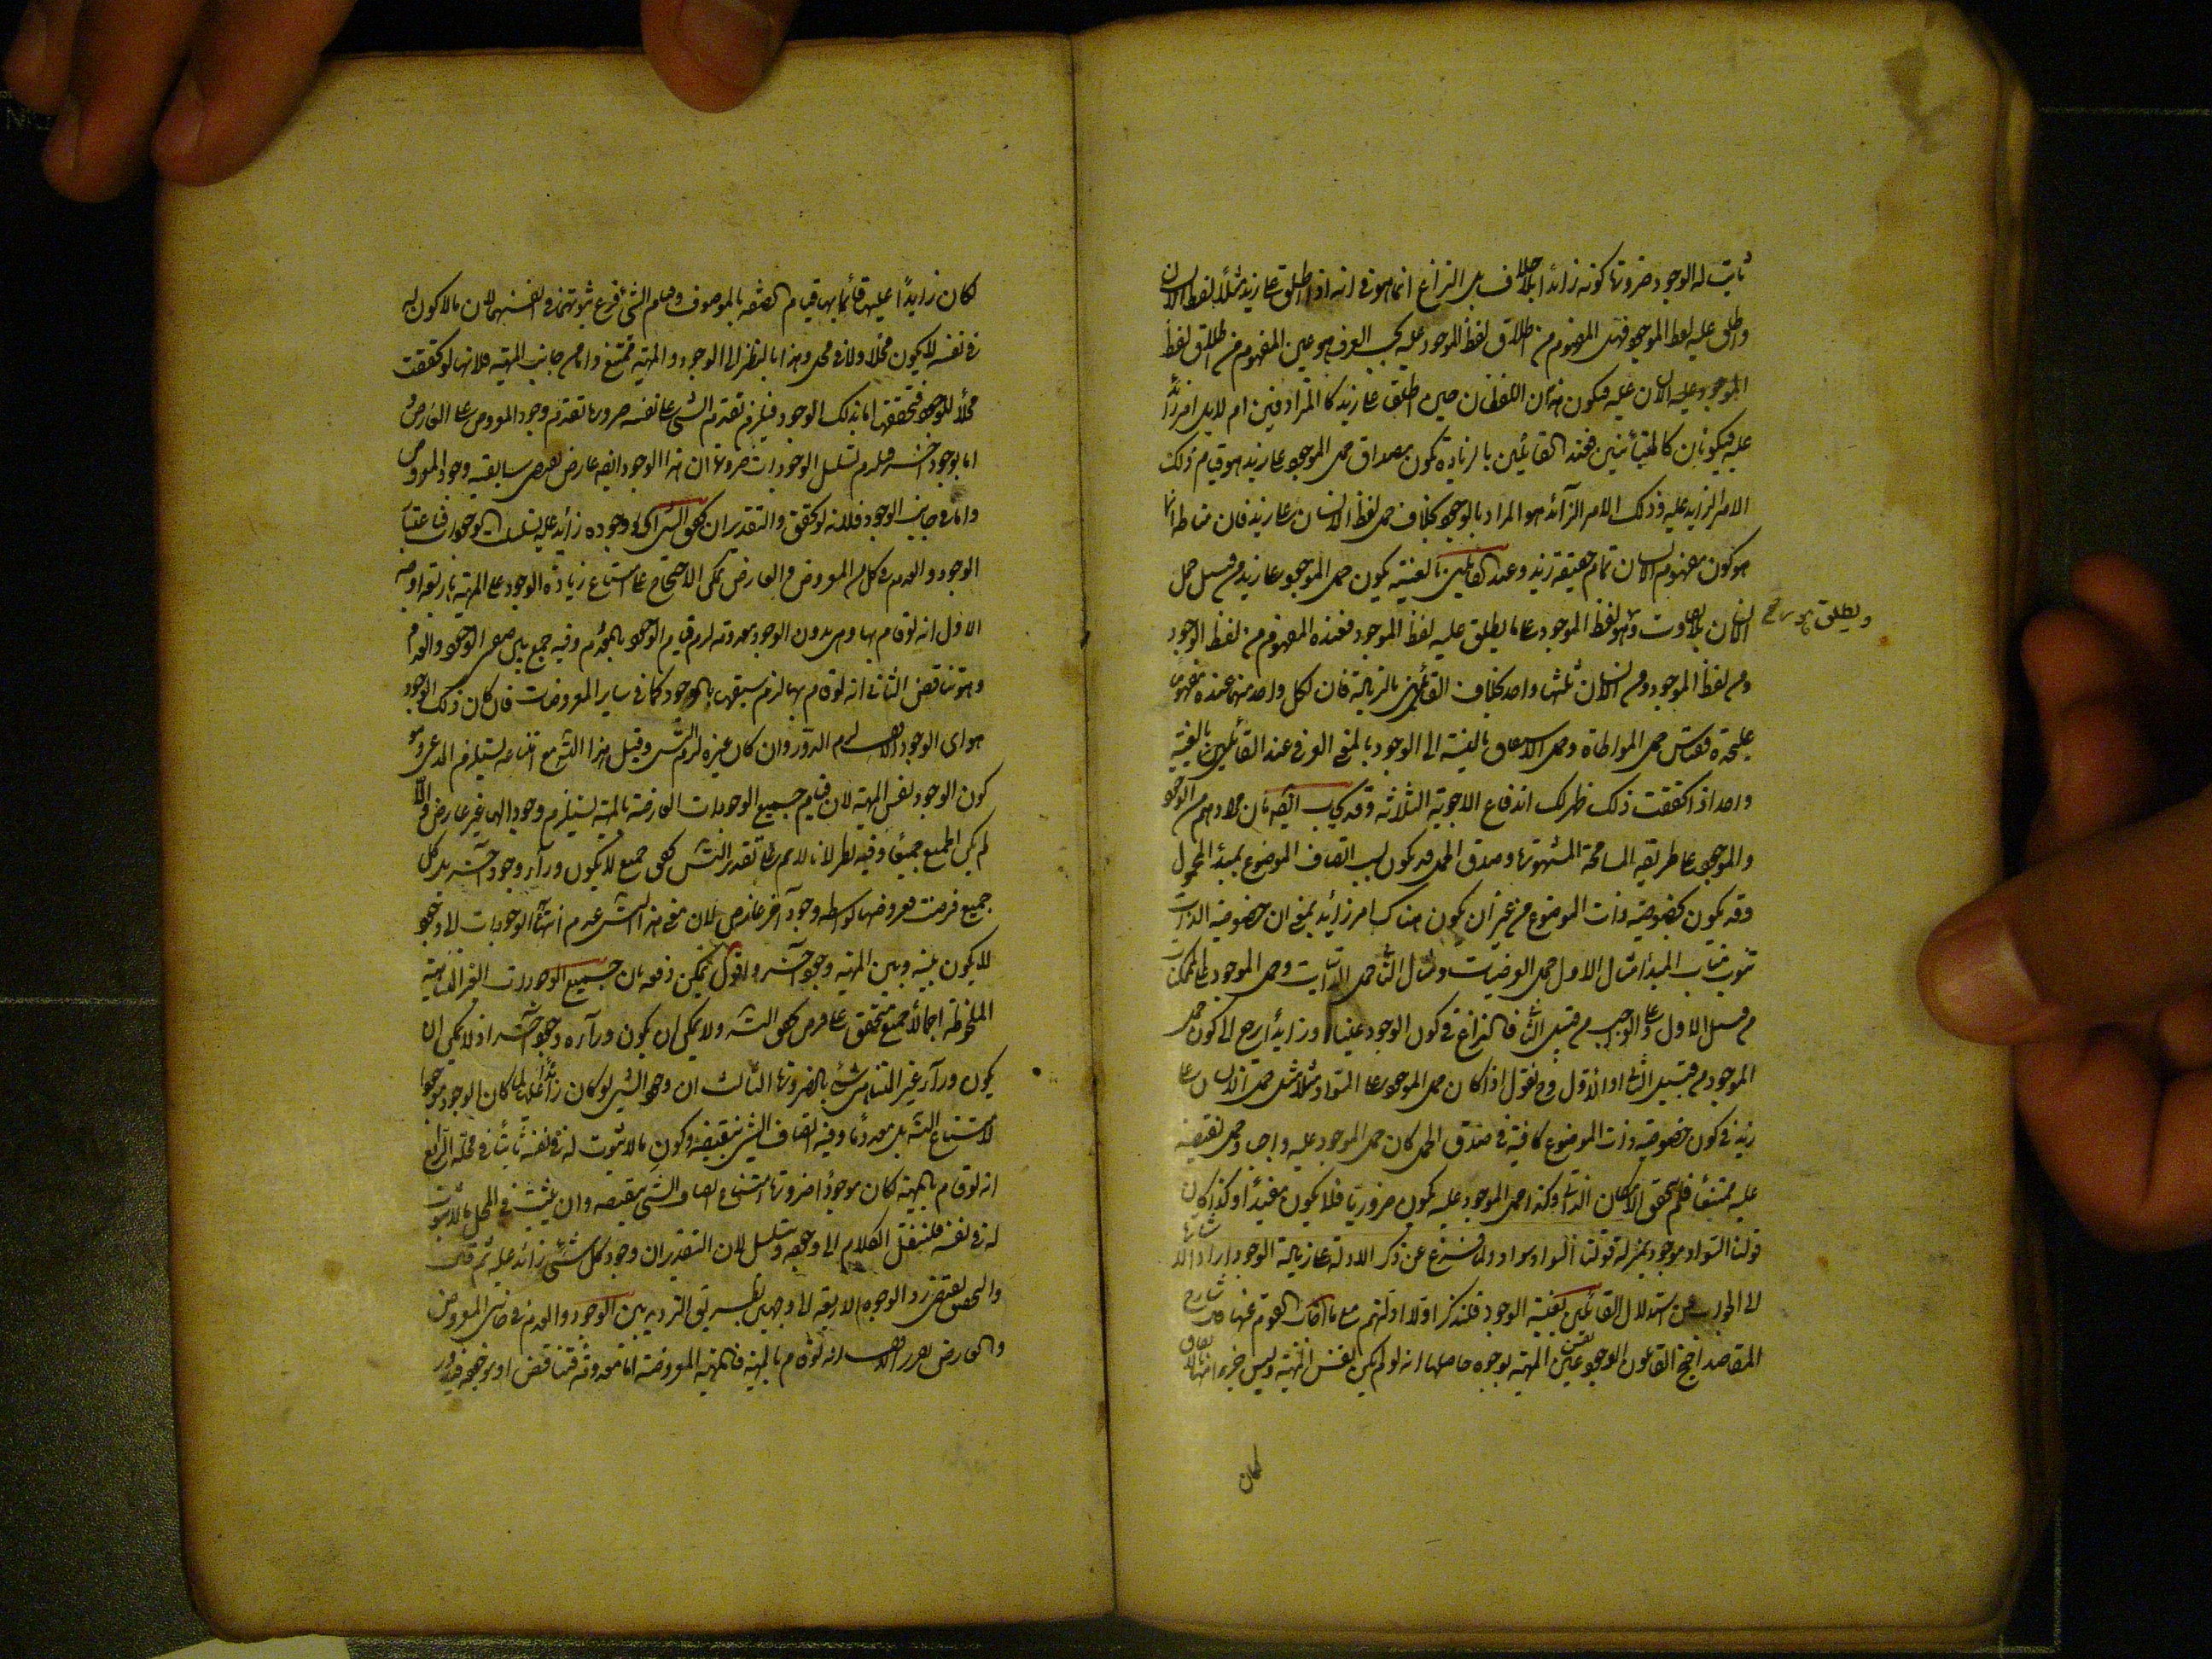 ثابت له الوجود ضرورتها كونه زائدا بلا خلاف بل النزاع انما هو في انه اذا اطلق على زيد مثلا لفظ الانسان
واطلق عليه لفظ الموجود فهل المفهوم من اطلاق لفظ الموجود عليه بحسب العرف هو عين المفهوم من اطلاق لفظ
الموجود عليه الانسان عليه فيكون هذان اللفظان حين اطلق على زيد كالمترادفين ام لا بل امر زائد
عليه فيكونان كالمتباينين فعند القائلين بالزيادة يكون مصداق حمل الموجود على زيد هو قيام ذلك
الامر الزايد عليه وذلك الامر الزائد هو المراد بالوجود بخلاف حمل لفظ الانسان على زيد فان مناطه انما
هو كون مفهوم الانسان تمام حقيقة زيد وعند القائلين بالعينية يكون حمل الموجود على زيد من قبيل حمل
الانسان بلا تفاوت وهو لفظ الموجود على ما يطلق عليه لفظ الموجود فعنده المفهوم من لفظ الوجود
ويطلق هو
ومن لفظ الموجود ومن الانسان ثلثها واحد بخلاف القائلين بالزيادة فان لكل واحد منها عنده مفهوم
عليحدة فقس حمل المواطاة وحمل الاشتقاق بالنسبة الى الوجود بالمعنى العرفي عند القائلين بالعينية
واحد اذا تحققت ذلك ظهر لك اندفاع الاجوبة الثلاثه وقد يجاب ايضا بان مرادهم من الوجود
والموجود على طريقة المسامحة المشهورة وصدق الحمل قد يكون بسبب اتصاف الموضوع بمبدأ المحمول
وقد يكون بخصوصية ذات الموضوع من غير ان يكون هناك امر زائد بمعنى ان خصوصية الذات
تنوب مناب المبدأ مثال الاول حمل العرضيات ومثال الثاني حمل الذاتيات وحمل الموجود على الممكنات
من قبيل الاول وعلى الواجب من قبيل الثاني فالنزاع في كون الوجود عينا او زايدا راجع الى كون حمل
الموجود من قبيل الثاني او الاول وح نقول اذا كان حمل الموجود على السواد مثلا مثل حمل الانسان على
زيد في كون خصوصية ذات الموضوع كافية في صدق الحمل كان حمل الموجود عليه واجبا وحمل نقيضه
عليه ممتنعا فلم يتحقق الامكان الذاتي وكذا حمل الموجود عليه يكون ضروريا فلا يكون مفيدا وكذا كان
قولنا السواد موجود بمنزلة قولنا السواد سواد ولما فرغ عن ذكر الادلة على زيادة الوجود اراد الاشارة
الى الجواب عن استدلال القائلين بعينية الوجود فلنذكر اولا ادلتهم مع ما افاد القوم عنها قال شارح
المقاصد احتج القائلون الوجود نفس عين المهية بوجوه حاصلها انه لو لم يكن نفس المهية وليس جزءا منها بالاتفاق
لكان
لكان زايدا عليها قائما بها قيام الصفة بالموصوف وقيام الشئ بالشئ فرع ثبوتهما في انفسهما لان ما لا كون له
في نفسه لا يكون محلا ولا في محل وهذا بالنظر الى الوجود والمهية ممتنع واما من جانب المهية فلانها لو تحققت
محلا للوجود فتحققها اما بذلك الوجود فيلزم تقدم الشئ على نفسه ضرورة تقدم وجود المعروض على العارض
اما بوجود اخر فيلزم تسلسل الوجودات ضرورة ان هذا الوجود ايضا عارض يقتضي سابقية وجود المعروض
واما في جانب الوجود فلانه لو تحقق والتقدير ان تحقق الشئ اي وجوده زائد عليه تسلسلت الوجودات فباعتبار
الوجود والعدم في كل من المعروض والعارض يمكن الاحتجاج على امتناع زيادة الوجود على المهية باربعة اوجه
الاول انه لو قام بها وهي بدون الوجود معدومة لزم قيام الوجود بالمعدوم وفيه جمع بين صفتي الوجود والعدم
وهو تناقض الثاني انه لو قام بها لزم سبقها بالوجود كما في ساير المعروضات فان كان ذلك الوجود
هو اي الوجود الاول لزم الدور وان كان غيره لزم التس وقيل هذا التس مع امتناعه يستلزم المدعى وهو
كون الوجود نفس المهية لان قيام جميع الوجودات العارضة بالمهية يستلزم وجودا لها غير عارض والا
لم يكن الجميع جميعا وفيه نظر لانا لا نسلم على تقدير التس تحقق جميع لا يكون وراءه وجود آخر بل كل
جميع فرضت فعروضها بواسطة وجود آخر عارض لان معنى هذا التس عدم انتهاء الوجودات الى وجود
لا يكون بينه وبين المهية وجود آخر واقول يمكن دفعه بان جميع الوجودات الغير المتناهية
الملحوظة اجمالا جميع متحقق على فرض تحقق التس ولا يمكن ان يكون وراءه وجود آخر اذ لا يمكن ان
يكون وراء غير المتناهي شئ بالضرورة الثالث ان وجود الشئ لو كان زائدا عليه لما كان الوجود موجودا
لامتناع التس بل معدوما وفيه اتصاف الشئ بنقيضه وكون ما لا ثبوت له في نفسه ثابتا في محله الرابع
انه لو قام بالمهية لكان موجودا ضرورة امتناع اتصاف الشئ بنقيضه وان يثبت في المحل ما لا ثبوت
له في نفسه فلننقل الكلام الى وجوده ويتسلسل لان التقدير ان وجود كل شئ زائد عليه ثم قال
والبعض يقتضي رد الوجوه الاربعة الى وجهين بطريق الترديد بين الوجود والعدم في جانبي المعروض
والعارض تقرير الاول انه لو قام بالمهية فالمهية المعروضة اما معدومة فتناقض او موجودة فيدور